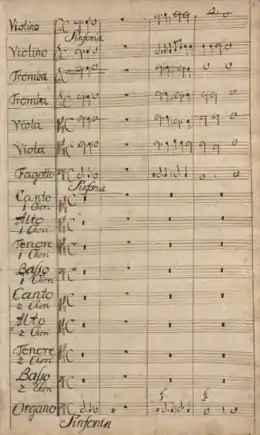 Violino
Sinfonia
Violino
Tromba
Tromba
Viola
Viola
Fagotto
Sinfonia
Canto
1 Chori
Alto
1 Chori
Tenore
1 Chori
Basso
1 Chori
Canto
2 Chori
Alto
2 Chori
Tenore
2 Chori
Basso
2 Chori
Organo
Sinfonia